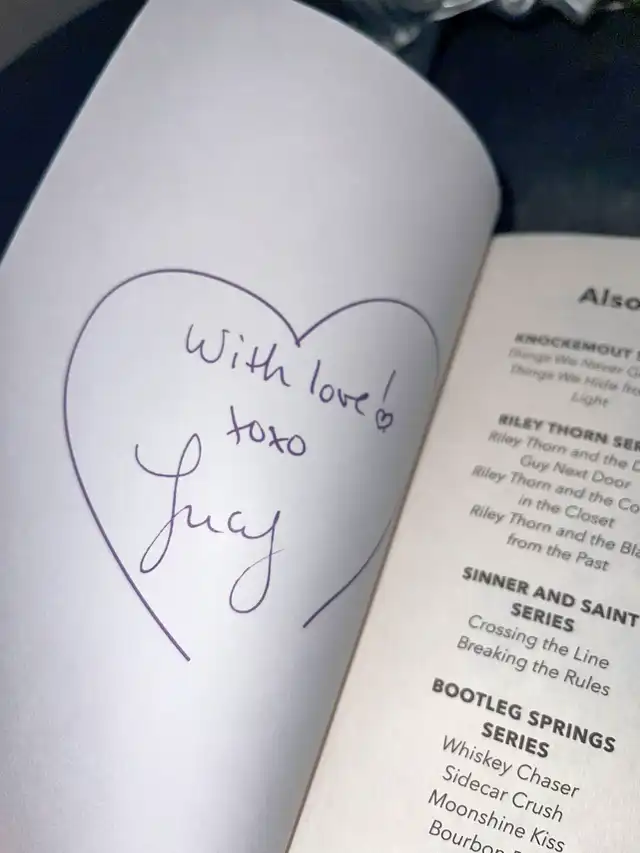 With love!
xoxo
Lucy
Also
KNOCKEMOUT
Things We Never
Things We Hide from
Light
RILEY THORN
Riley Thorn and the
Guy Next Door
Riley Thorn and the
in the Closet
Riley Thorn and the
from the Past
SINNER AND SAINT
SERIES
Crossing the Line
Breaking the Rules
BOOTLEG SPRINGS
SERIES
Whiskey Chaser
Sidecar Crush
Moonshine Kiss
Bourbon